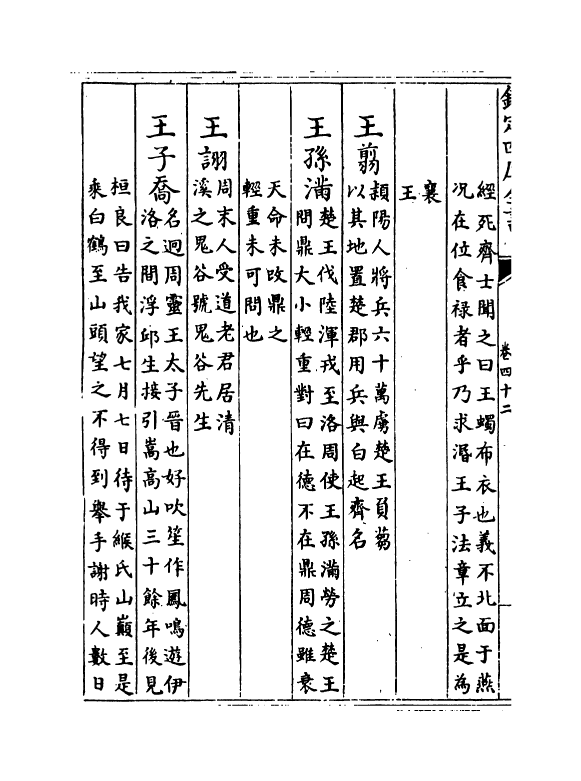 欽定四庫全書
卷四十二
經死齊士聞之曰王蠋布衣也義不北面于燕
况在位食祿者乎乃求湣王子法章立之是為
襄
王
王翦
頻陽人將兵六十萬虜楚王負芻
以其地置楚郡用兵與白起齊名
王孫滿
楚王伐陸渾戎至洛周使王孫滿勞之楚王
問鼎大小輕重對曰在德不在鼎周德雖衰
天命未改鼎之
輕重未可問也
王詡
周末人受道老君居清
溪之鬼谷號鬼谷先生
王子喬
名迥周靈王太子晉也好吹笙作鳳鳴遊伊
洛之間浮邱生接引嵩高山三十餘年後見
桓良曰告我家七月七日待于緱氏山巔至是
乘白鶴至山頭望之不得到舉手謝時人數日